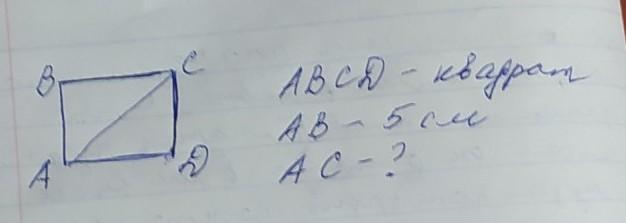 B C
A D
ABCD - квадрат
AB - 5 см
AC - ?